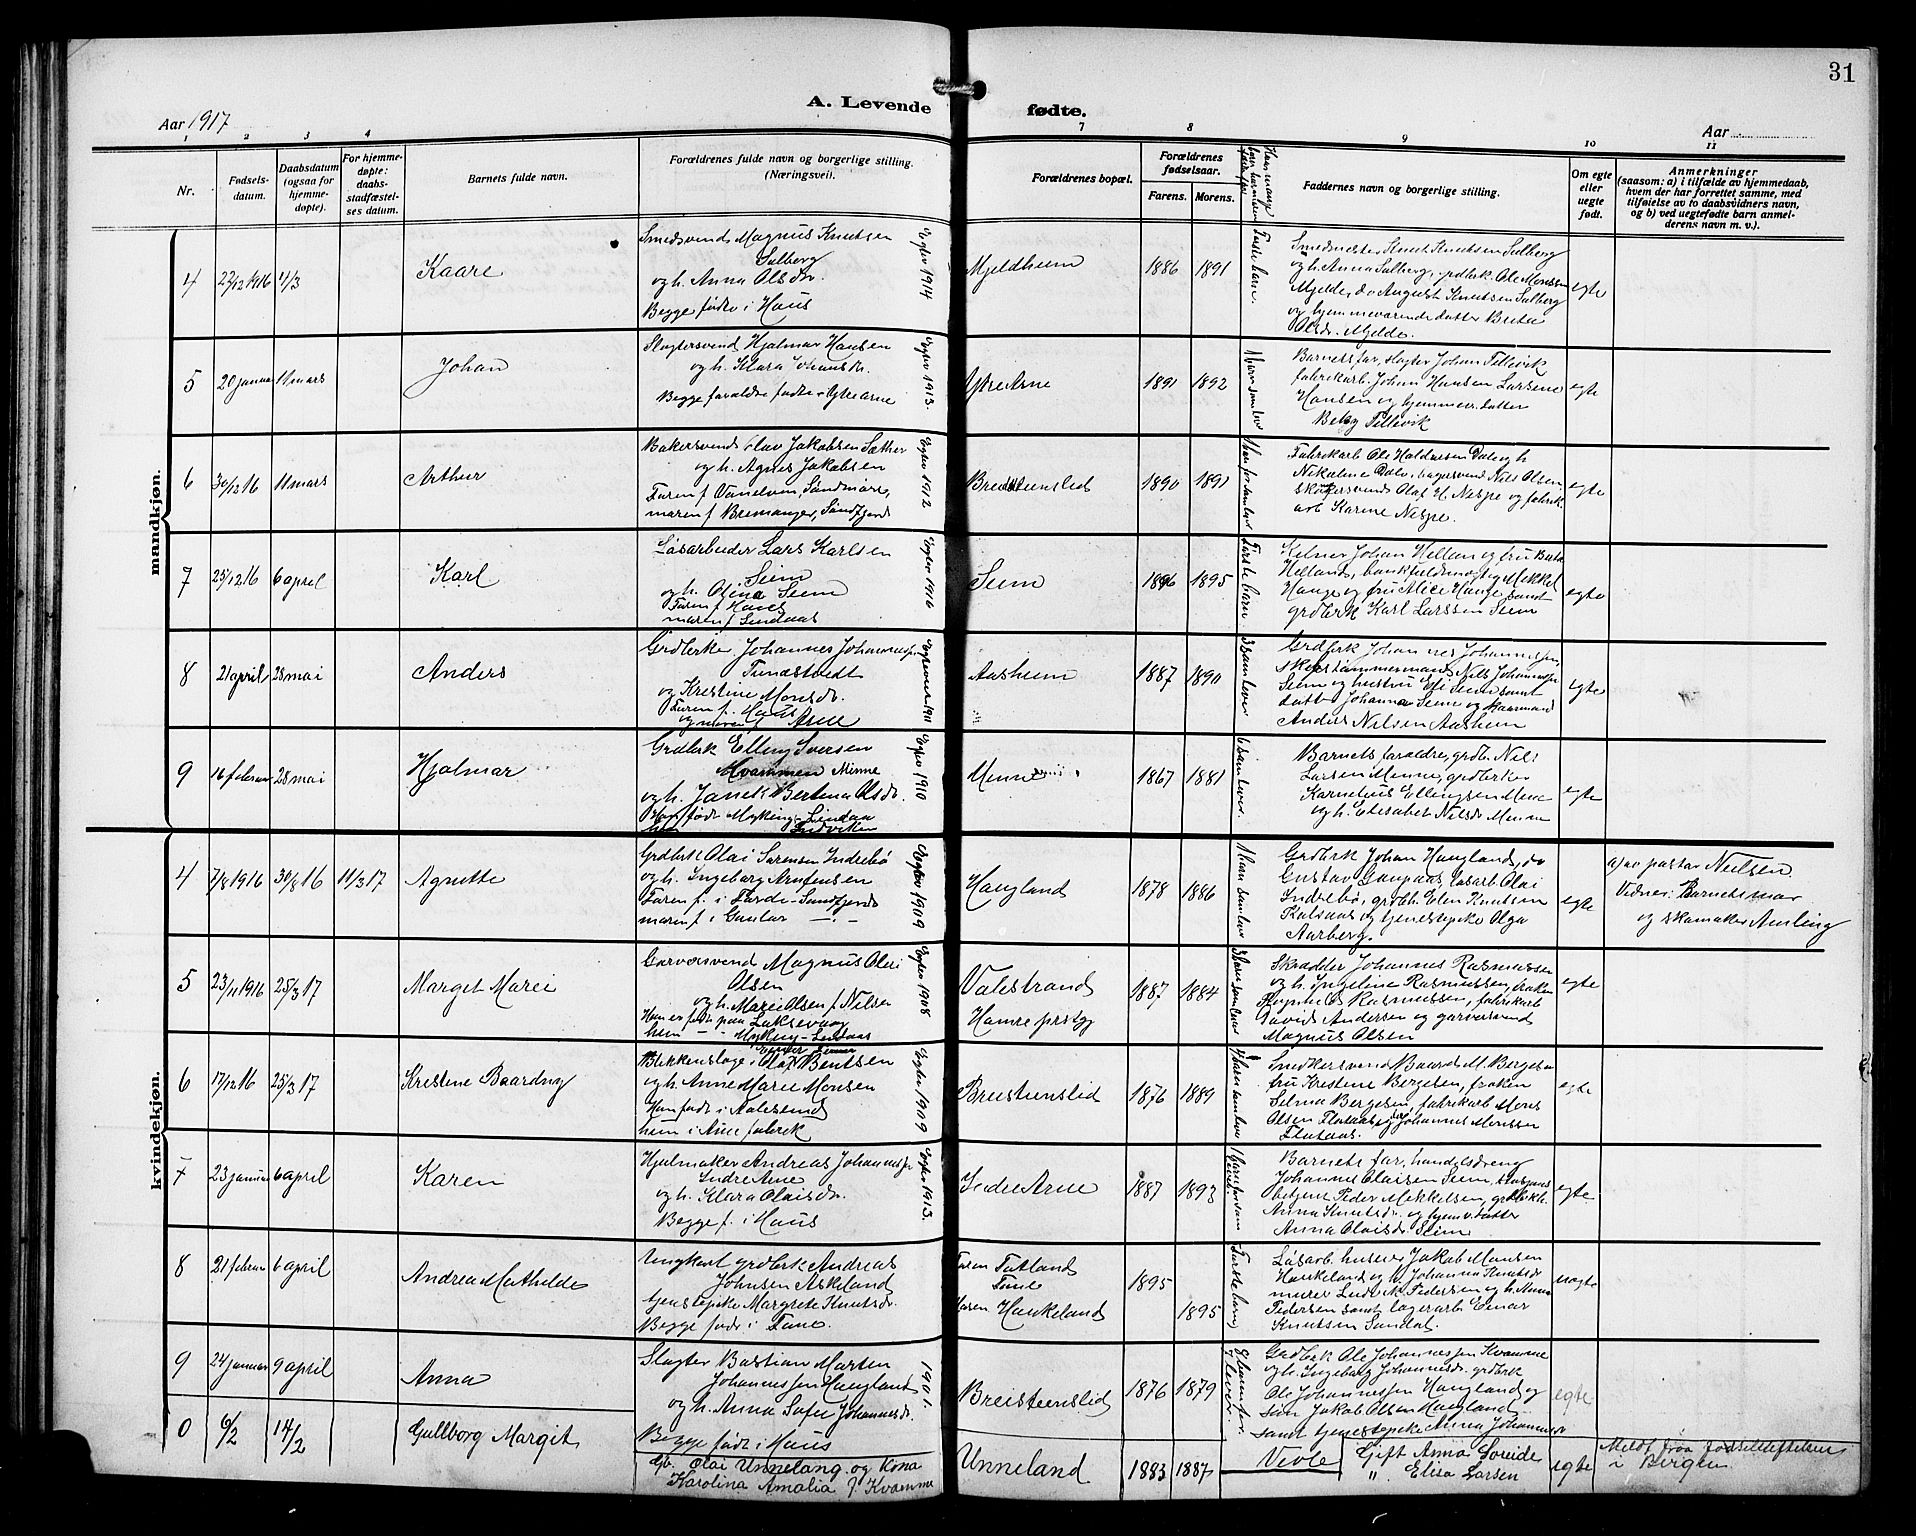 31
A. Levende
fødte.
Aar 1917
Aar
1 2 3 4 7 8 9 10 11
Nr.
Fødsels-
datum.
Daabsdatum
(ogsaa for
hjemme-
døpte).
For hjemme-
døpte:
daabs-
stadfæstel-
ses datum.
Barnets fulde navn.
Forældrenes fulde navn og borgerlige stilling.
(Næringsvei).
Forældrenes bopæl.
Forældrenes
fødselsaar.
Farens. Morens.
Faddernes navn og borgerlige stilling.
Om egte
eller
uegte
født.
Anmerkninger
(saasom: a) i tilfælde av hjemmedaab,
hvem der har forrettet samme, med
tilføielse av to daabsvidners navn,
og b) ved uegtefødte barn anmel-
derens navn m. v.).
mandkjøn.
4 27/12 1916 4/3 Kaare
Smedsvend Magnus Knutsen
Solberg
og h. Anna Olsdr.
Begge fødte i Haus
Egtev 1914
Mjeldheim 1886 1891
Første barn.
Smedmester Knut Knutsen Solberg
og h. Anna Solberg, grdbrk. Ole Monsen
Mjelde, do August Knutsen Solberg
og hjemmeværende datter Brita
Olsdr. Mjelde.
egte
5 20 januar 11 mars Johan
Slagtersvend Hjalmar Hansen
og h. Klara Johansdr.
Begge forældre fødte i Ytre Arne
Egtev 1913.
Ytre Arne 1891 1892
Barnets far, slagter Johan Tellevik
fabrikarb. Johan Hansen Larsene
Hansen og hjemmev. datter
Betsy Tellevik
egte
6 30/12 16 11 mars Arthur
Bakersvend Olav Jakobsen Sæther
og h. Agnes Jakobsen
Faren f. Vanelven, Søndmøre,
moren f. Bremanger, Søndfjord
Egtev 1912
Breisteenslid 1890 1891
Fabrikarb Ole Haldorsen Dale og h
Nikoline Dale, bagersvend Nils Olsen
skogersvend Olaf H. Nespe og fabrik
arb Karene Nespe.
egte
7 25/12 16 6 april Karl
Løsarbeider Lars Karlsen
Seim
og h. Olina Seim
Faren f. Haus
moren f. Lindaas
Egtev 1916
Seim 1896 1895
Første barn
Kelner Johan Helland og fru Berta
Helland, bankfuldmægtig Mikkel
Hauge og fru Alice Hauge samt
grdbrk Karl Larssen Seim
egte
8 21 april 28 mai Anders
Grdbrker Johannes Johannesen
Tunestvedt
og Kristine Monsdr.
Faren f. Haus
og moren f. Arne
1911
Aasheim 1887 1890
3 barn lever
Grdbrk Johannes Johannesen,
skibstømmermand Nils Johannesen
Seim og hustru Eli Seim samt
datter Johanna Seim og
Anders Nilsen Aasheim
egte
9 16 februar 28 mai Hjalmar
Grdbrk Elling Iversen
Kvammen Minne
og h. Janek Bertina Olsdr.
Han født Myking Lindaas
hun Indviken
Egtev 1910
Menne 1867 1881
6 barn lever.
Barnets forældre, grdb. Nils
Larsen Menne, grdbrker
Kornelius Ellingsen Menne
og h. Elisabet Nilsdr Menne
egte
kvindekjøn.
4 7/8 1916 30/8 16 11/3 17 Agnette
Grdbrk Olai Sørensen Indrebø
og h. Ingeborg Arntsen
Faren f. i Førde Søndfjord
moren f. i Gaular — · —
Egtev 1909
Haugland 1878 1886
Grdbrk Johan Haugland, do
Gustav Gaupaas løsarb. Olai
Indrebø, grdb. Elen Knutsen
Kalsaas og tjenestepike Olga
Aarberg.
egte
a) av pastor Nielsen
Vidner: Barnets mor
og skomaker Amling
5 23/11 1916 25/3 17 Marget Marei
Garversvend Magnus Olai
Olsen
og h. Marei Olsen f. Nilsen
Han er født paa Laksevaag
hun — " — Myking Lindaas
Egtev 1908
Valestrand
Hamre prstgj 1887 1884
Skrædder Johannes Rasmussen
og h. Ingeline Rasmussen, frøken
Ragnhild Rasmussen, fabrikarb
David Andersen og garversvend
Magnus Olsen
egte
6 17/12 16 25/3 17 Kristine Baardny
Blikkenslager Olaf Bentsen
og h. Anne Marie Monsen
Han født i Aalesund
hun i Arne fabrik
Egtev 1909
Breisteenslid 1876 1889
Snedkersvend Baard M. Bergesen
fru Kristine Bergesen, frøken
Selma Bergesen, fabrikarb Mons
Olsen Flataas og Johannes Monssen
Flataas.
egte
7 23 januar 6 april Karen
Hjulmaker Andreas Johannesen
Indre Arne
og h. Klara Olaisdr.
Begge f. i Haus
Egtev 1913.
Indre Arne 1887 1893
Barnets far, handelsdreng
Johannes Olaisen Seim, stasjons
betjent Peder Mikkelsen, grdbrk.
Anna Knutsdr. og hjemv. datter
Anna Olaisdr. Seim
egte
8 21 februar 6 april Andrea Mathilde
Ungkarl grdbrk Andreas
Johnsen Askeland
Tjenestepike Margrete Knutsdr.
Begge født i Fane.
Faren Totland
Fane
Moren Haukeland
1895
1895
Første barn
Løsarb. huseier Jakob Monsen
Haukeland og h. Johanna Knutsdr
murer Ludv. M. Pedersen og h. Anna
Pedersen samt lagerarb Einar
Knutsen Sandal.
uegte
9 24 januar 9 april Anna
Slagter Bastian Marten
Johannessen Haugland
og h. Anna Sofie Johannesdr.
Begge født i Haus
1901.
Breisteenslid 1876 1879
Grdbrk Ole Johannessen Kvamme
og h. Ingeborg Johannesdr. grdbrk
Ole Johannessen Haugland og
søn Jakob Olsen Haugland
samt tjenestepike Anna Johannesen
egte
0 6/2 14/2 Gullborg Margit
Gb. Olai Unneland og kona
Karolina Amalia f. Kvamme
Unneland 1883 1887
Vevle
Gift Anna Soreide
" Elisa Larsen
egte
Meldt fra fødselsstiftelsen
i Bergen